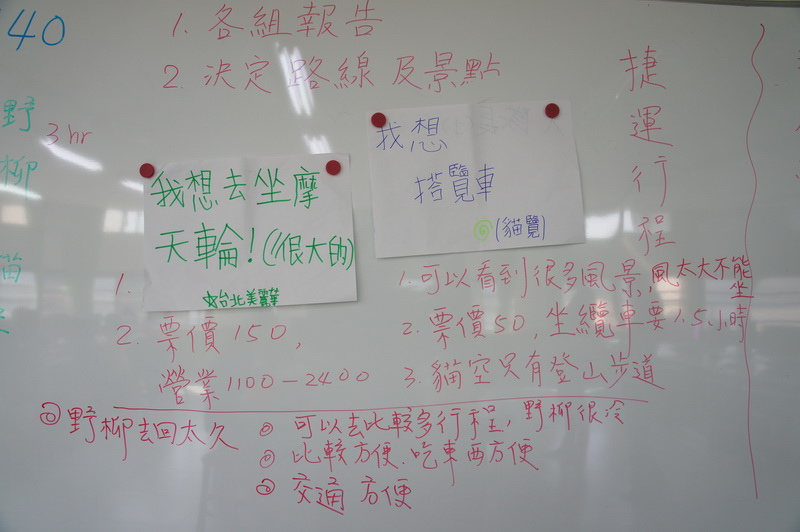 40
1. 各組報告
2. 決定路線及景點
捷運行程
野柳
3 hr
我想去坐摩
天輪!(很大的)
☆台北美麗華
我想
搭覽車
(貓覽)
1.
2. 票價150,
營業1100-2400
1. 可以看到很多風景,風太大不能坐
2. 票價50,坐纜車要1.5小時
3. 貓空只有登山步道
◎野柳去回太久
◎ 可以去比較多行程,野柳很冷
◎ 比較方便.吃東西方便
◎ 交通方便